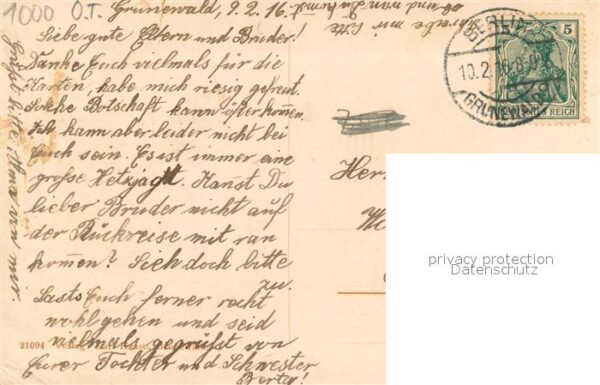 1000 O.T. Grunewald, 9.2.16.
Liebe gute Eltern und Bruder!
Danke Euch vielmals für die
Karten, habe mich riesig gefreut.
Solche Botschaft kann öfter kommen,
Ich kann aber leider nicht bei
Euch sein. Es ist immer eine
große Hetzjagd. Kannst Du
lieber Bruder nicht auf
der Rückreise mit ran
kommen? Sieh doch bitte
zu.
Lasts Euch ferner recht
wohl gehen und seid
vielmals gegrüsst von
Eurer Tochter und Schwester
Berta!
mir bitte
BERLIN
10.2.16.8-9
GRUNEWALD
5
REICH
Her
privacy protection
Datenschutz
21094